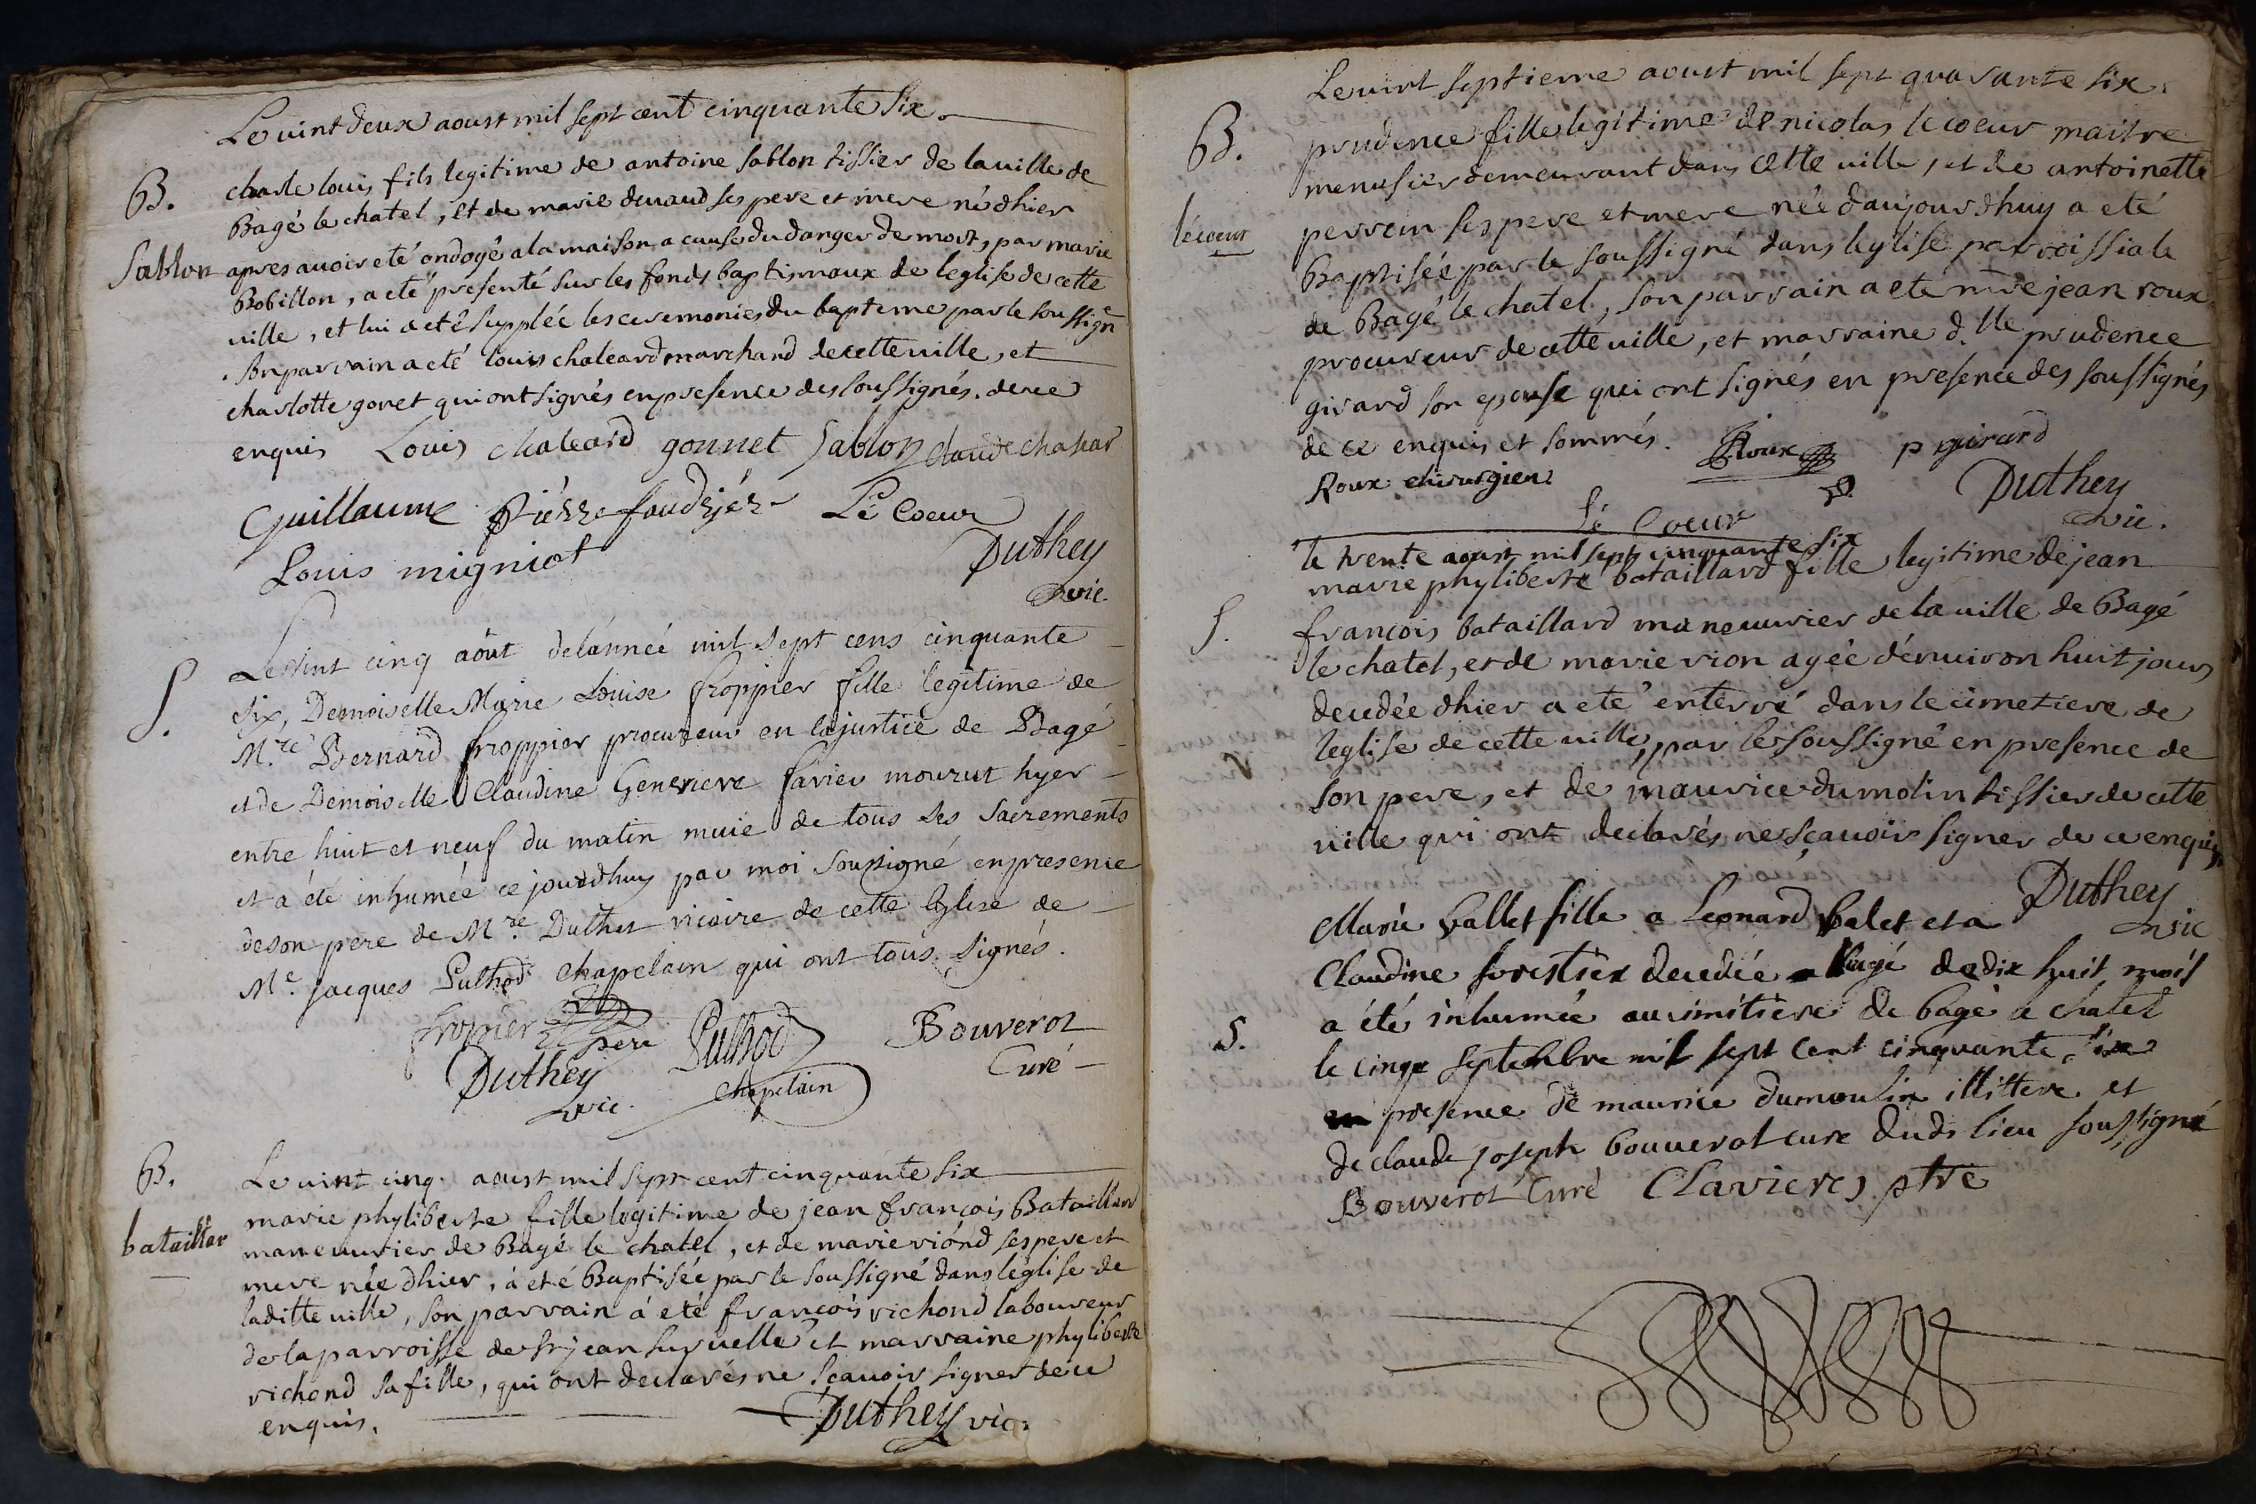 Le vint deux aoust mil sept cent cinquante six.
B. charle louis fils legitime de antoine sablon tissier de la ville de
Bagé le chatel, et de marie devaud ses pere et mere né dhier
Sablon apres avoir eté ondoyé a la maison a cause du danger de mort, par marie
Bobillon, a eté presenté sur les fonds baptismaux de leglise de cette
ville, et lui a eté supplée les ceremonies du bapteme par le soussigné
son parrain a eté louis chaleard marchand de cette ville, et
charlotte gonet qui ont signés en presence des soussignés. de ce
enquis Louis chaleard gonnet Sablon claude
Guillaume Lé Coeur
Louis migniot Duthey
vic.
S. Le Vint cinq aôut de lánneé mil sept cens cinquante
six, Demoiselle Marie Louise froppier fille legitime de
M.re Bernard froppier procureur en la justice de Bagé
et de Demoiselle Claudine Genevieve favier mourut hyer
entre huit et neuf du matin munie de tous les sacrements
et a été inhumée ce jourdhuy par moi soussigné en presence
de son pere de M.re Duthet vicaire de cette Eglise de
M.e jacques Puthod chapelain qui ont tous signés.
froppier pere Puthod Bouverot
Duthey chapelain Curé
vic.
B. Le vint cinq aoust mil sept cent cinquante six
marie phyliberte fille legitime de jean françois Bataillard
batailler maneuvrier de Bagé le chatel, et de marie viónd ses pere et
mere née dhier, à eté Baptisée par le soussigné dans léglise de
laditte ville, son parrain á eté françois richond laboureur
de la parroisse de st jean sur velle et marraine phyliberte
richond sa fille, qui ont declarés ne sçavoir signer de ce
enquis. Duthey vic.
Le vint septieme aoust mil sept quarante six.
B. prudence fille legitime de nicolas lecoeur maitre
menusier demeurant dans cette ville, et de antoinette
lécoeur perrein ses pere et mere née daujourdhuy a eté
Baptisée par le soussigné dans leglise parroissiale
de Bagé le chatel, son parrain a eté m.re jean roux
procureur de cette ville, et marraine d.lle prudence
girard son epouse qui ont signés en presence des soussignés
de ce enquis et sommés. Roux p girard
Roux chirurgien Duthey
Lé Coeur vic.
le trente aoust mil sept cinquante six
marie phyliberte bataillard fille legitime de jean
S. françois bataillard maneuvrier de la ville de Bagé
le chatel, et de marie vion agée dénviron huit jours
decedée dhier a eté enterré dans le cimetiere de
leglise de cette ville, par le soussigné en presence de
son pere, et de maurice dumolin tissier de cette
ville qui ont declarés ne sçavoir signer de ce enquis.
Duthey
vic
Marie ballet fille a Leonard balet et a
Claudine forestier decedée a lagé de dix huit mois
S. a été inhumée au cimitière de bagé le chatel
le cinqe septembre mil sept cent cinquante six
en presence de maurice dumoulin illittere et
de claude joseph bouverot cure dudt lieu soussigné
Bouverot Curé Clavieres ptre